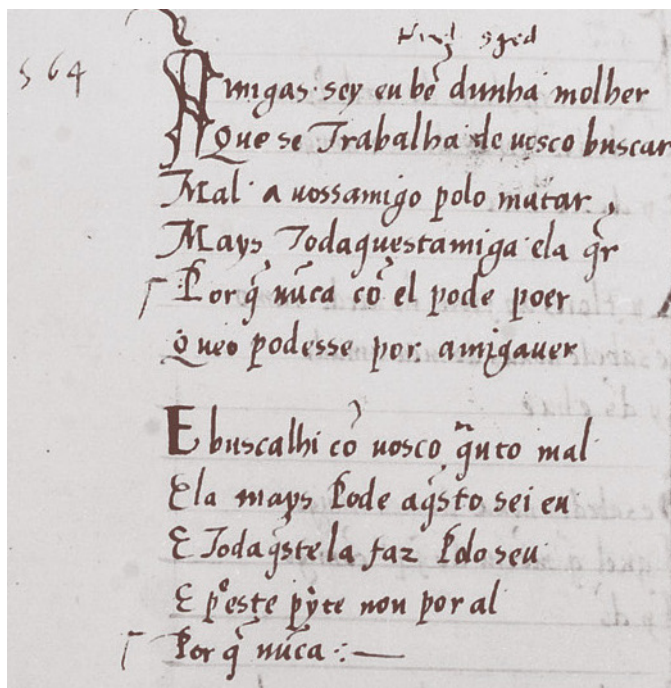 564
Amigas sey eu bẽ dunha molher
Que se Trabalha de uosco buscar
Mal a uossamigo polo matar
Mays Todaquestamiga ela q̃r
Porq̃ nũca cõ el pode poer
Queo podesse por amigauer
E buscalhi cõ uosco q̃nto mal
Ela mays pode aq̃sto sei eu
E Todaq̃ste la faz pdo seu
E p̃ este p̃yte non por al
Porq̃ nũca :—